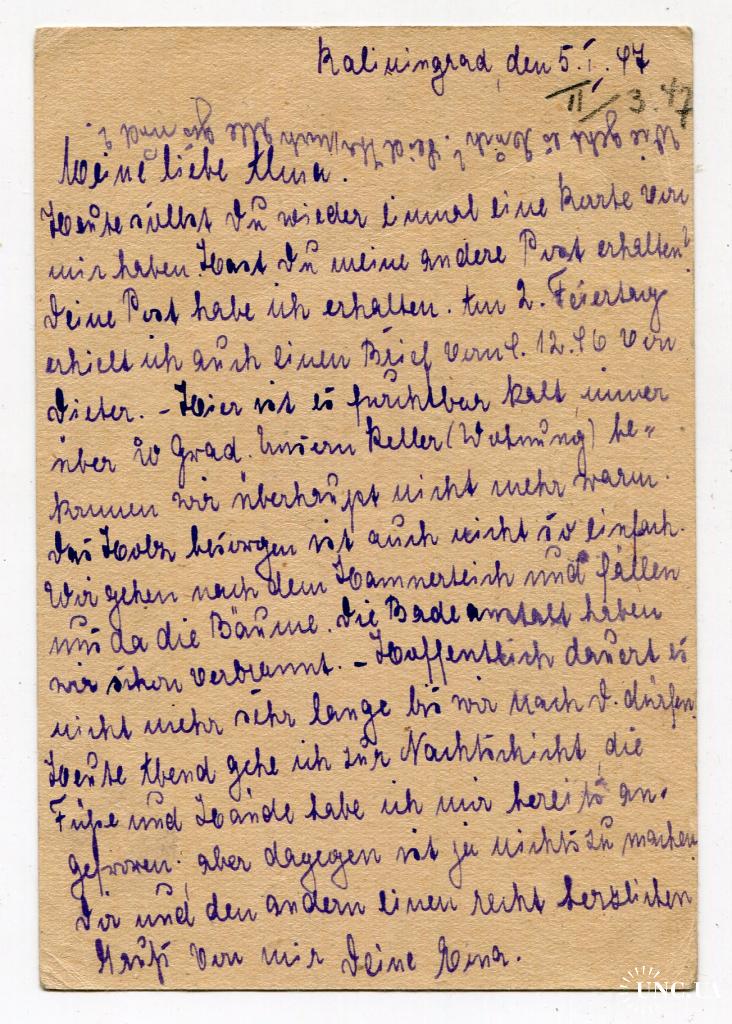 Kaliningrad, den 5.I.47
II/3.47
Wie geht es Euch? Seid Ihr noch alle gesund?
Meine liebe Alma.
Heute sollst Du wieder einmal eine Karte von
mir haben Hast Du meine andere Post erhalten?
Deine Post habe ich erhalten. Am 2. Feiertag
erhielt ich auch einen Brief vom 1. 12.46 von
Dieter. – Hier ist es furchtbar kalt, immer
über 20 Grad. Unsern Keller (Wohnung) be=
kommen wir überhaupt nicht mehr warm.
Das Holz besorgen ist auch nicht so einfach.
Wir gehen nach dem Hammerteich und fällen
uns da die Bäume. Die Badeanstalt haben
wir schon verbrannt. – Hoffentlich dauert es
nicht mehr sehr lange bis wir nach D. dürfen.
Heute Abend gehe ich zur Nachtschicht, die
Füße und Hände habe ich mir bereits an-
gefroren, aber dagegen ist ja nichts zu machen.
Dir und den andern einen recht herzlichen
Gruß von mir Deine
UNC.UA